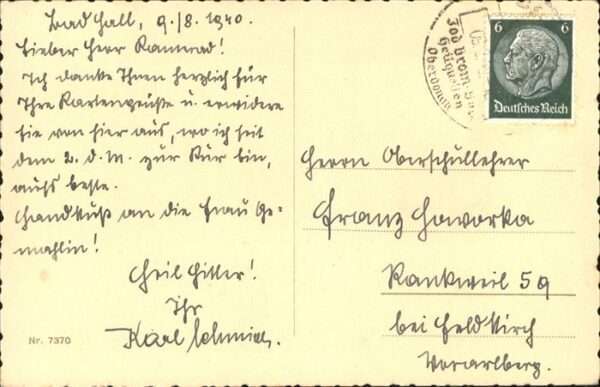 Bad Hall, 9./8. 1940.
Lieber Herr Kamerad!
Ich danke Ihnen herzlich für
Ihre Kartengrüße u. erwidere
sie von hier aus, wo ich seit
dem 2. d. M. zur Kur bin,
aufs beste.
Handkuß an die Frau Ge-
mahlin!
Heil Hitler!
Ihr
Karl Schmidt.
Nr. 7370
Jod Brom
Heilquellen
Oberdonau
6 6
Deutsches Reich
Herrn Oberschullehrer
Franz Haworka
Rankweil 59
bei Feldkirch
Vorarlberg.